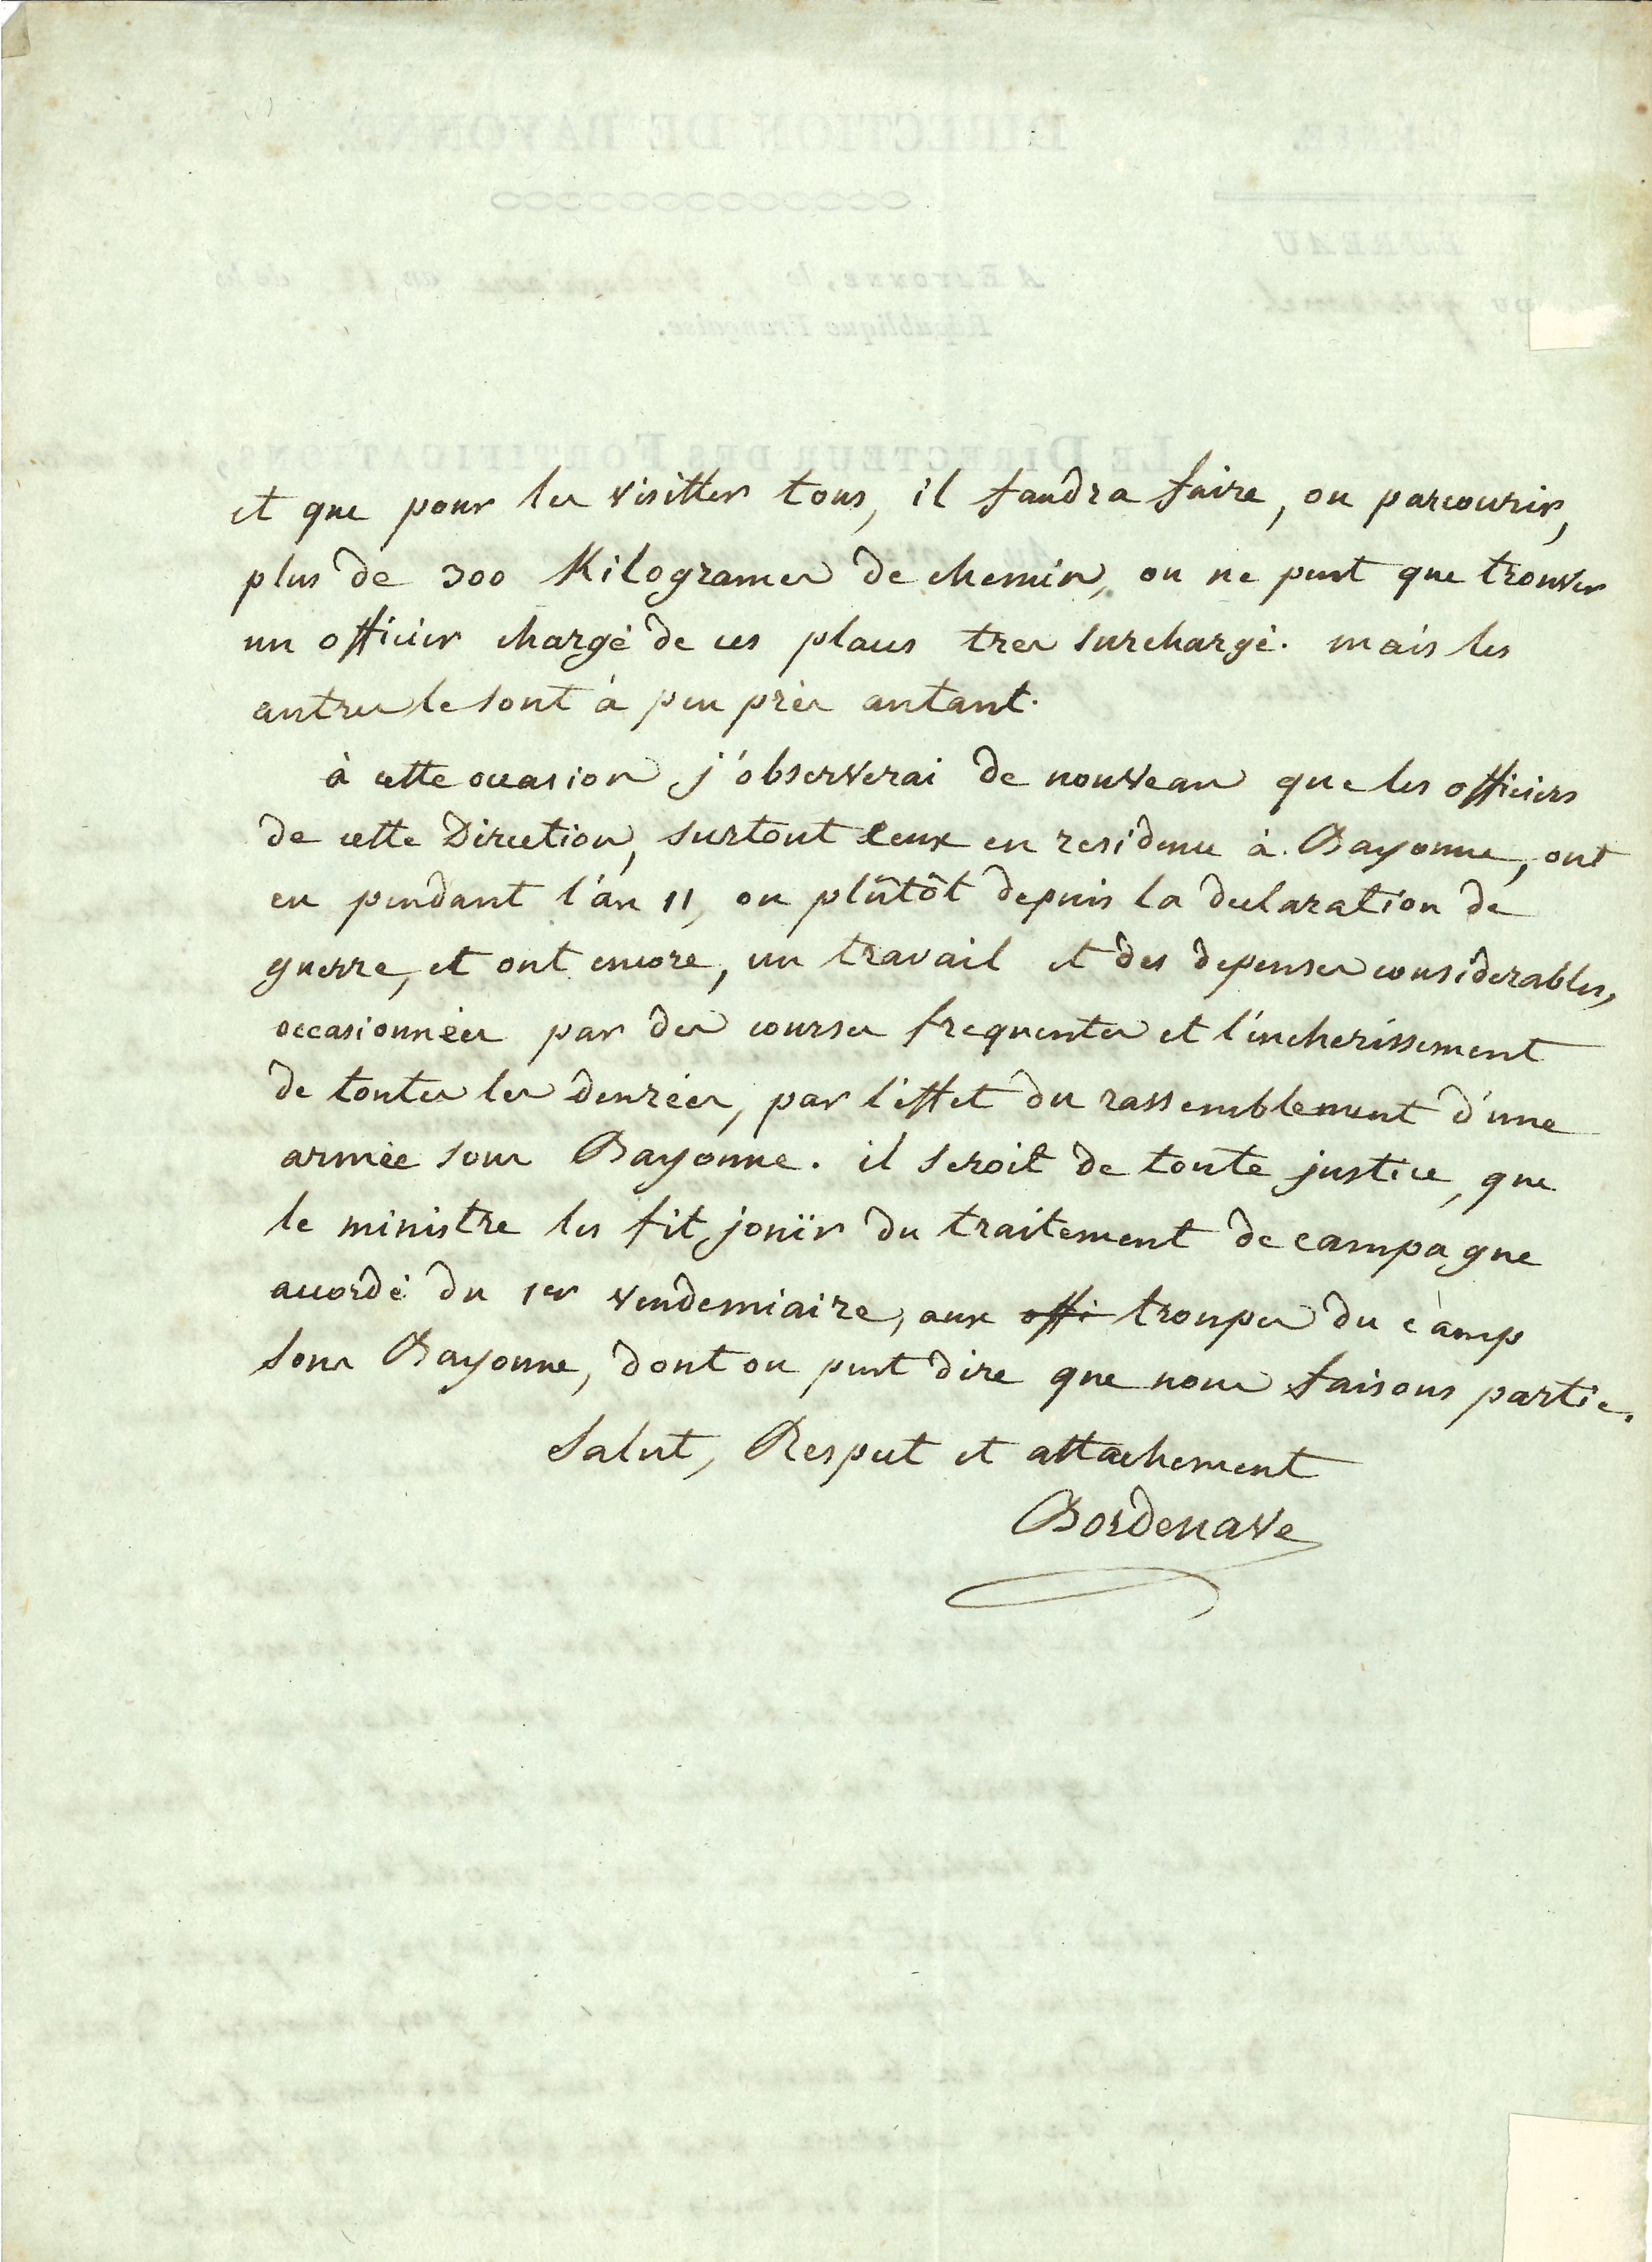 et que pour les visitter tous, il faudra faire, ou parcourir,
plus de 300 Kilogrames de chemin, on ne peut que trouver
un officier chargé de ces places tres surchargé. mais les
autres le sont à peu près autant.
à cette occasion j'observerai de nouveau que les officiers
de cette Direction, surtout ceux en residence à Bayonne, ont
eu pendant l'an 11, ou plûtôt depuis la declaration de
guerre, et ont encore, un travail et des depenses considerables,
occasionnées par des courses frequentes et l'encherissement
de toutes les denrées, par l'effet du rassemblement d'une
armée sous Bayonne. il seroit de toute justice, que
le ministre les fit jouïr du traitement de campagne
accordé du 1er vendemiaire, aux offi troupes du camp
sous Bayonne, dont on peut dire que nous faisons partie.
Salut, Respect et attachement
Bordenave
DIRECTION DE BAYONNE.
BUREAU
A BAYONNE, le
République Française.
LE DIRECTEUR DES FORTIFICATIONS,